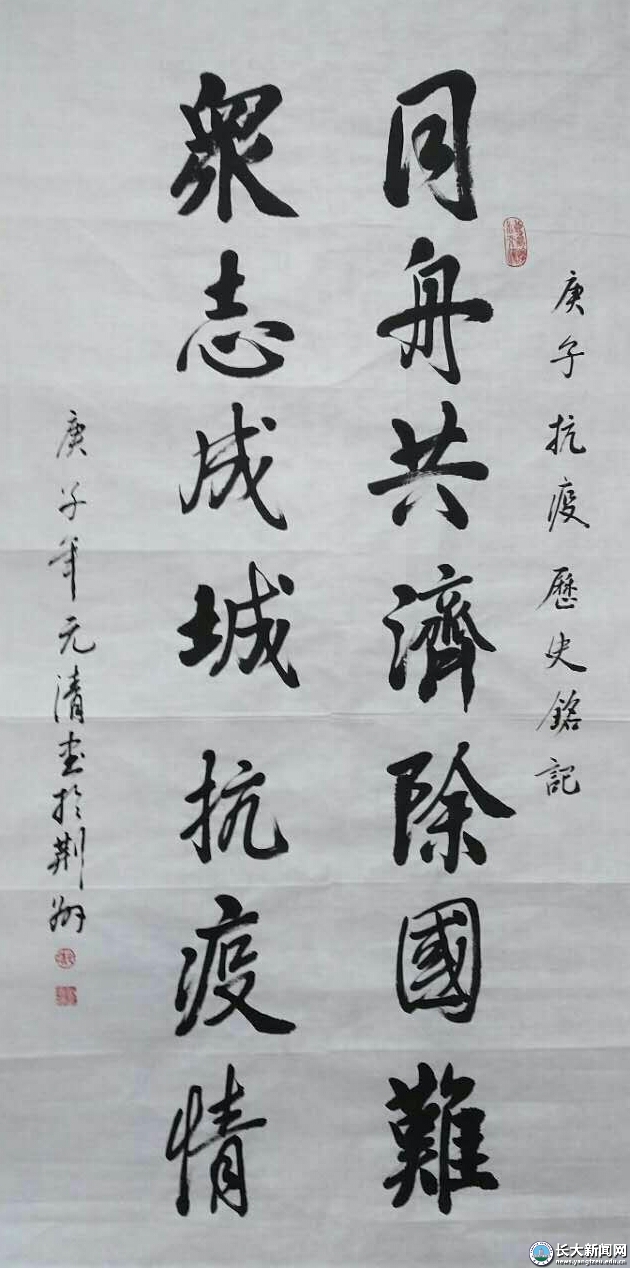 庚子抗疫歷史銘記
同舟共濟除國難
眾志成城抗疫情
庚子年元清書於荆州
长大新闻网
news.yangtzeu.edu.cn